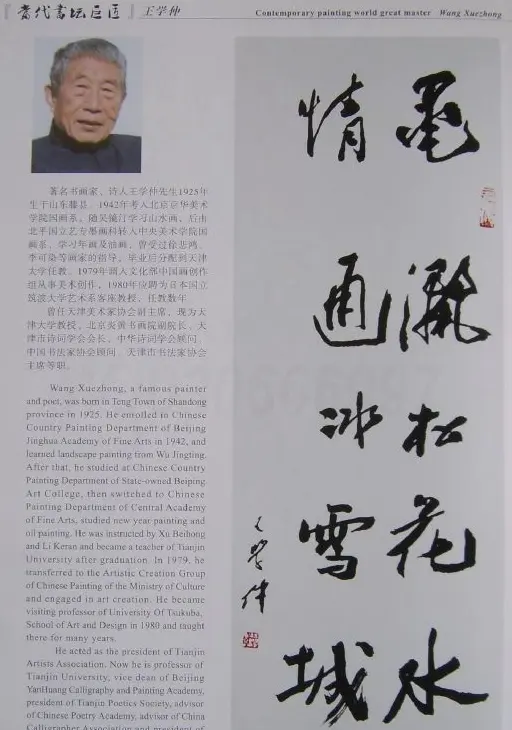 『當代书坛巨匠』王学仲
Contemporary painting world great master Wang Xuezhong
著名书画家、诗人王学仲先生1925年
生于山东滕县。1942年考入北京京华美术
学院国画系，随吴镜汀学习山水画，后由
北平国立艺专墨画科转入中央美术学院国
画系，学习年画及油画，曾受过徐悲鸿、
李可染等画家的指导，毕业后分配到天津
大学任教。1979年调入文化部中国画创作
组从事美术创作，1980年应聘为日本国立
筑波大学艺术系客座教授，任教数年
曾任天津美术家协会副主席，现为天
津大学教授、北京炎黄书画院副院长、天
津市诗词学会会长、中华诗词学会顾问、
中国书法家协会顾问、天津市书法家协会
主席等职。
Wang Xuezhong, a famous painter
and poet, was born in Teng Town of Shandong
province in 1925. He enrolled in Chinese
Country Painting Department of Beijing
Jinghua Academy of Fine Arts in 1942, and
learned landscape painting from Wu Jingting.
After that, he studied at Chinese Country
Painting Department of State-owned Beiping
Art College, then switched to Chinese
Painting Department of Central Academy
of Fine Arts, studied new year painting and
oil painting. He was instructed by Xu Beihong
and Li Keran and became a teacher of Tianjin
University after graduation. In 1979, he
transferred to the Artistic Creation Group
of Chinese Painting of the Ministry of Culture
and engaged in art creation. He became
visiting professor of University Of Tsukuba,
School of Art and Design in 1980 and taught
there for many years.
He acted as the president of Tianjin
Artists Association. Now he is professor of
Tianjin University, vice dean of Beijing
YanHuang Calligraphy and Painting Academy,
president of Tianjin Poetics Society, advisor
of Chinese Poetry Academy, advisor of China
Calligrapher Association and president of
墨松花水
情通冰雪城
王學仲